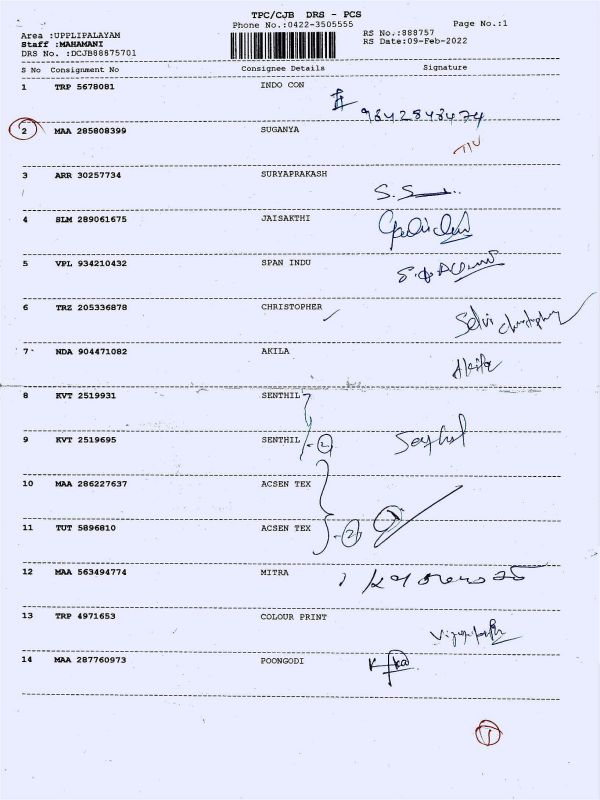 TPC/CJB DRS - PCS
Phone No.:0422-3505555
Page No.:1
Area :UPPLIPALAYAM
Staff :MAHAMANI
DRS No. :DCJB88875701
RS No.:888757
RS Date:09-Feb-2022
S No Consignment No Consignee Details Signature
1 TRP 5678081 INDO CON
9842848474
2 MAA 285808399 SUGANYA
3 ARR 30257734 SURYAPRAKASH
4 SLM 289061675 JAISAKTHI
5 VPL 934210432 SPAN INDU
6 TRZ 205336878 CHRISTOPHER
Selvi Christopher
7 NDA 904471082 AKILA
Akila
8 KVT 2519931 SENTHIL
9 KVT 2519695 SENTHIL -2
Senthil
10 MAA 286227637 ACSEN TEX
11 TUT 5896810 ACSEN TEX -2
12 MAA 563494774 MITRA
13 TRP 4971653 COLOUR PRINT
14 MAA 287760973 POONGODI
1